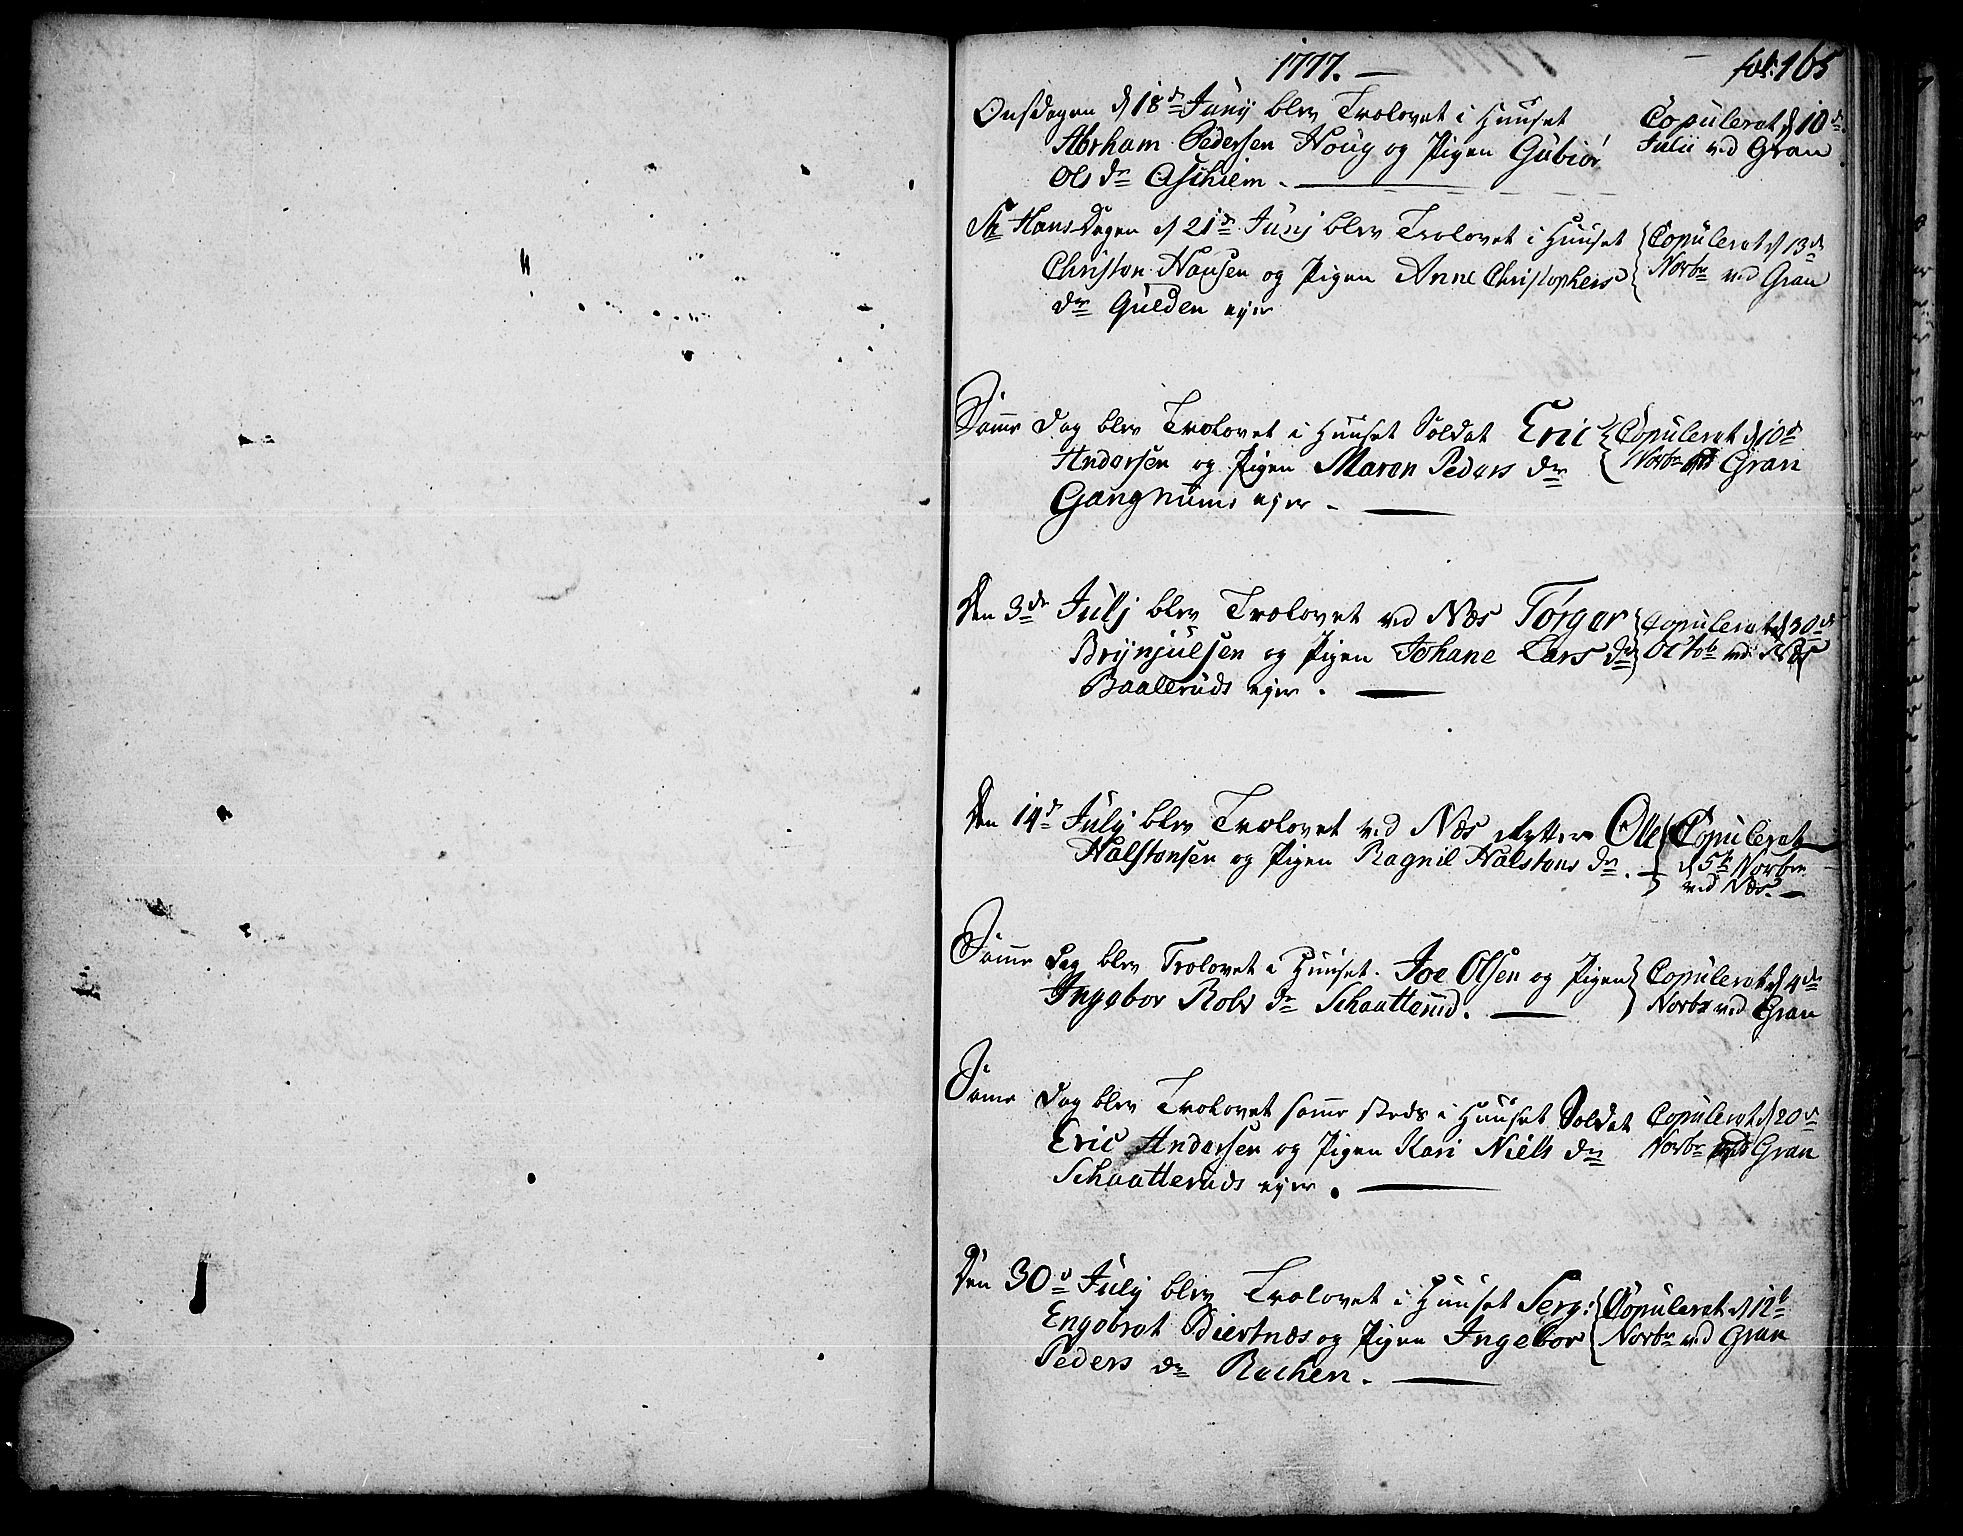 1777. —
fol: 165
Onsdagen d 18de Junij blev Trolovet i Huuset
Abrham Pedersen Houg og Pigen Gubiør
Ols dr Aschiem. —
Copuleret d 10de
Julii ved Gran
St Hans Dagen d 21de Junij blev Trolovet i Huuset
Christen Hansen og Pigen Anne Christophers
dr Gulden ejer
Copuleret d 13de
Novbr ved Gran
Samme Dag blev Trolovet i Huuset Soldat Eric
Andersen og Pigen Maren Peders dr
Gangnums ejer. —
Copuleret d 10de
Novbr ved Gran
Den 3de Julj blev Trolovet ved Næs Torger
Brijnjulsen og Pigen Johane Lars dr
Baalleruds ejer. —
Copuleret d 30de
Octob ved Næs
Den 14de July blev Trolovet ved Næs Rytter Ole
Halstensen og Pigen Ragnil Halstens dr. —
Copuleret
d 5te Novbr
ved Næs. —
Samme Dag blev Trolovet i Huuset. Joe Olsen og Pigen
Ingebor Rolv dr Schaatterud. —
Copuleret d 4de
Novbr ved Gran
Same Dag blev Trolovet samme steds i Huuset Soldat
Eric Andersen og Pigen Kari Niels dr
Schaatteruds ejer. —
Copuleret d 20de
Novbr ved Gran
Den 30de July blev Trolovet i Huuset Serg:
Engebret Biertnæs og Pigen Ingebor
Peders dr Rachen. —
Copuleret d 12te
Novbr ved Gran